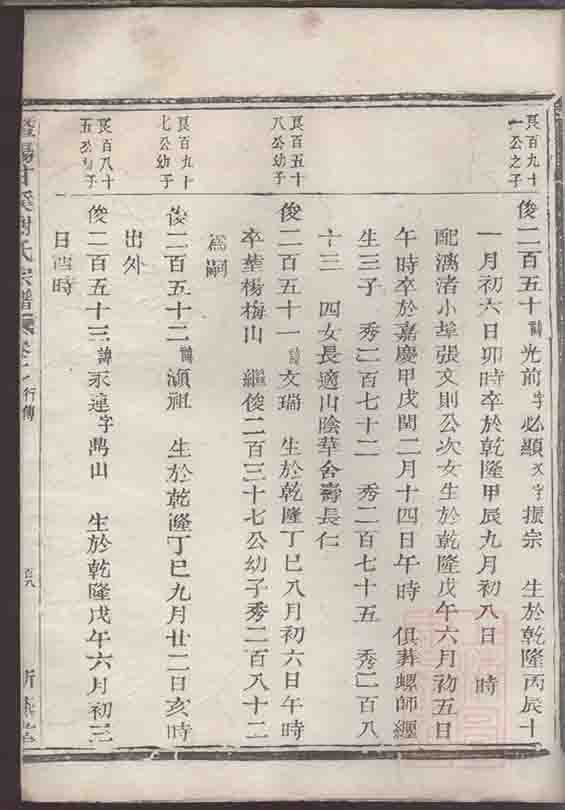 良百九十一公之子
俊二百五十諱光前字必顯又字振宗 生於乾隆丙辰十
一月初六日卯時卒於乾隆甲辰九月初八日 時
配漓渚小 張文則公次女生於乾隆戊午六月初五日
午時卒於嘉慶甲戌閏二月十四日午時 俱葬螺師經
生三子 秀二百七十二 秀二百七十五 秀二百八
十三 四女長適山陰華舍壽長仁
良百五十八公幼子
俊二百五十一諱文瑞 生於乾隆丁巳八月初六日午時
卒葬楊梅山 繼俊二百三十七公幼子秀二百八十二
為嗣
良百九十七公幼子
俊二百五十二諱 祖 生於乾隆丁巳九月廿二日亥時
出外
良百八十五公幼子
俊二百五十三諱永連字鳳山 生於乾隆戊午六月初三
日酉時
暨陽 溪謝氏宗譜 卷 行傳
百八